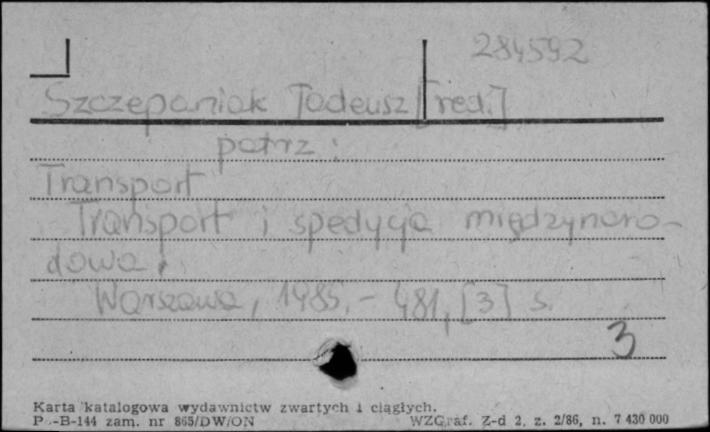 284592
Szczepaniak Tadeusz [red.]
patrz:
Transport
Transport i spedycja międzynaro-
dowa.
Warszawa, 1985. - 481, [3] s.
3
Karta katalogowa wydawnictw zwartych i ciągłych.
P -B-144 zam. nr 865/DW/ON WZGraf. Z-d 2, z. 2/86, n. 7 430 000